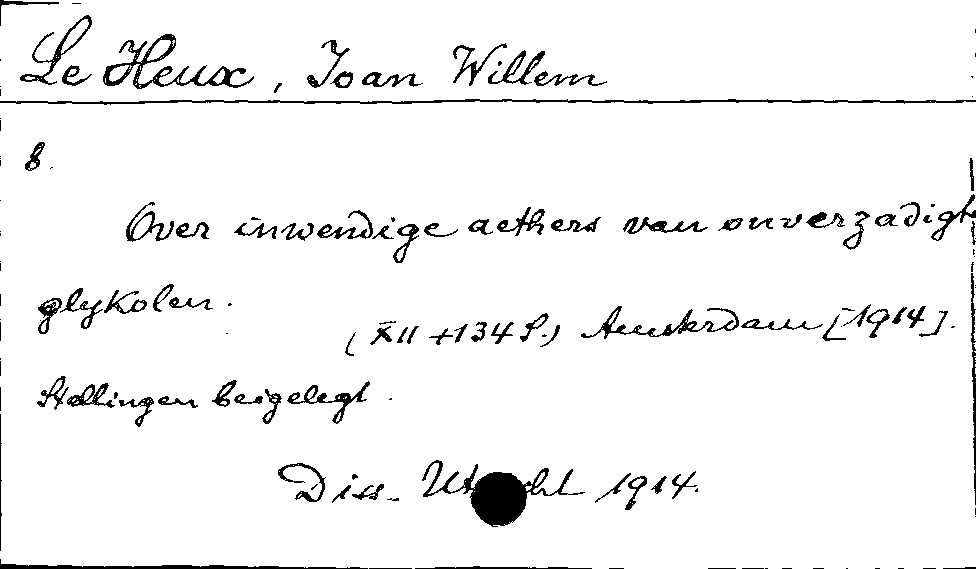 Le Heux, Joan Willem
8.
Over inwendige aethers van onverzadigte
glykolen.
(XII + 134 S.) Amsterdam [1914].
Stellingen beigelegt.
Diss. Utrecht 1914.